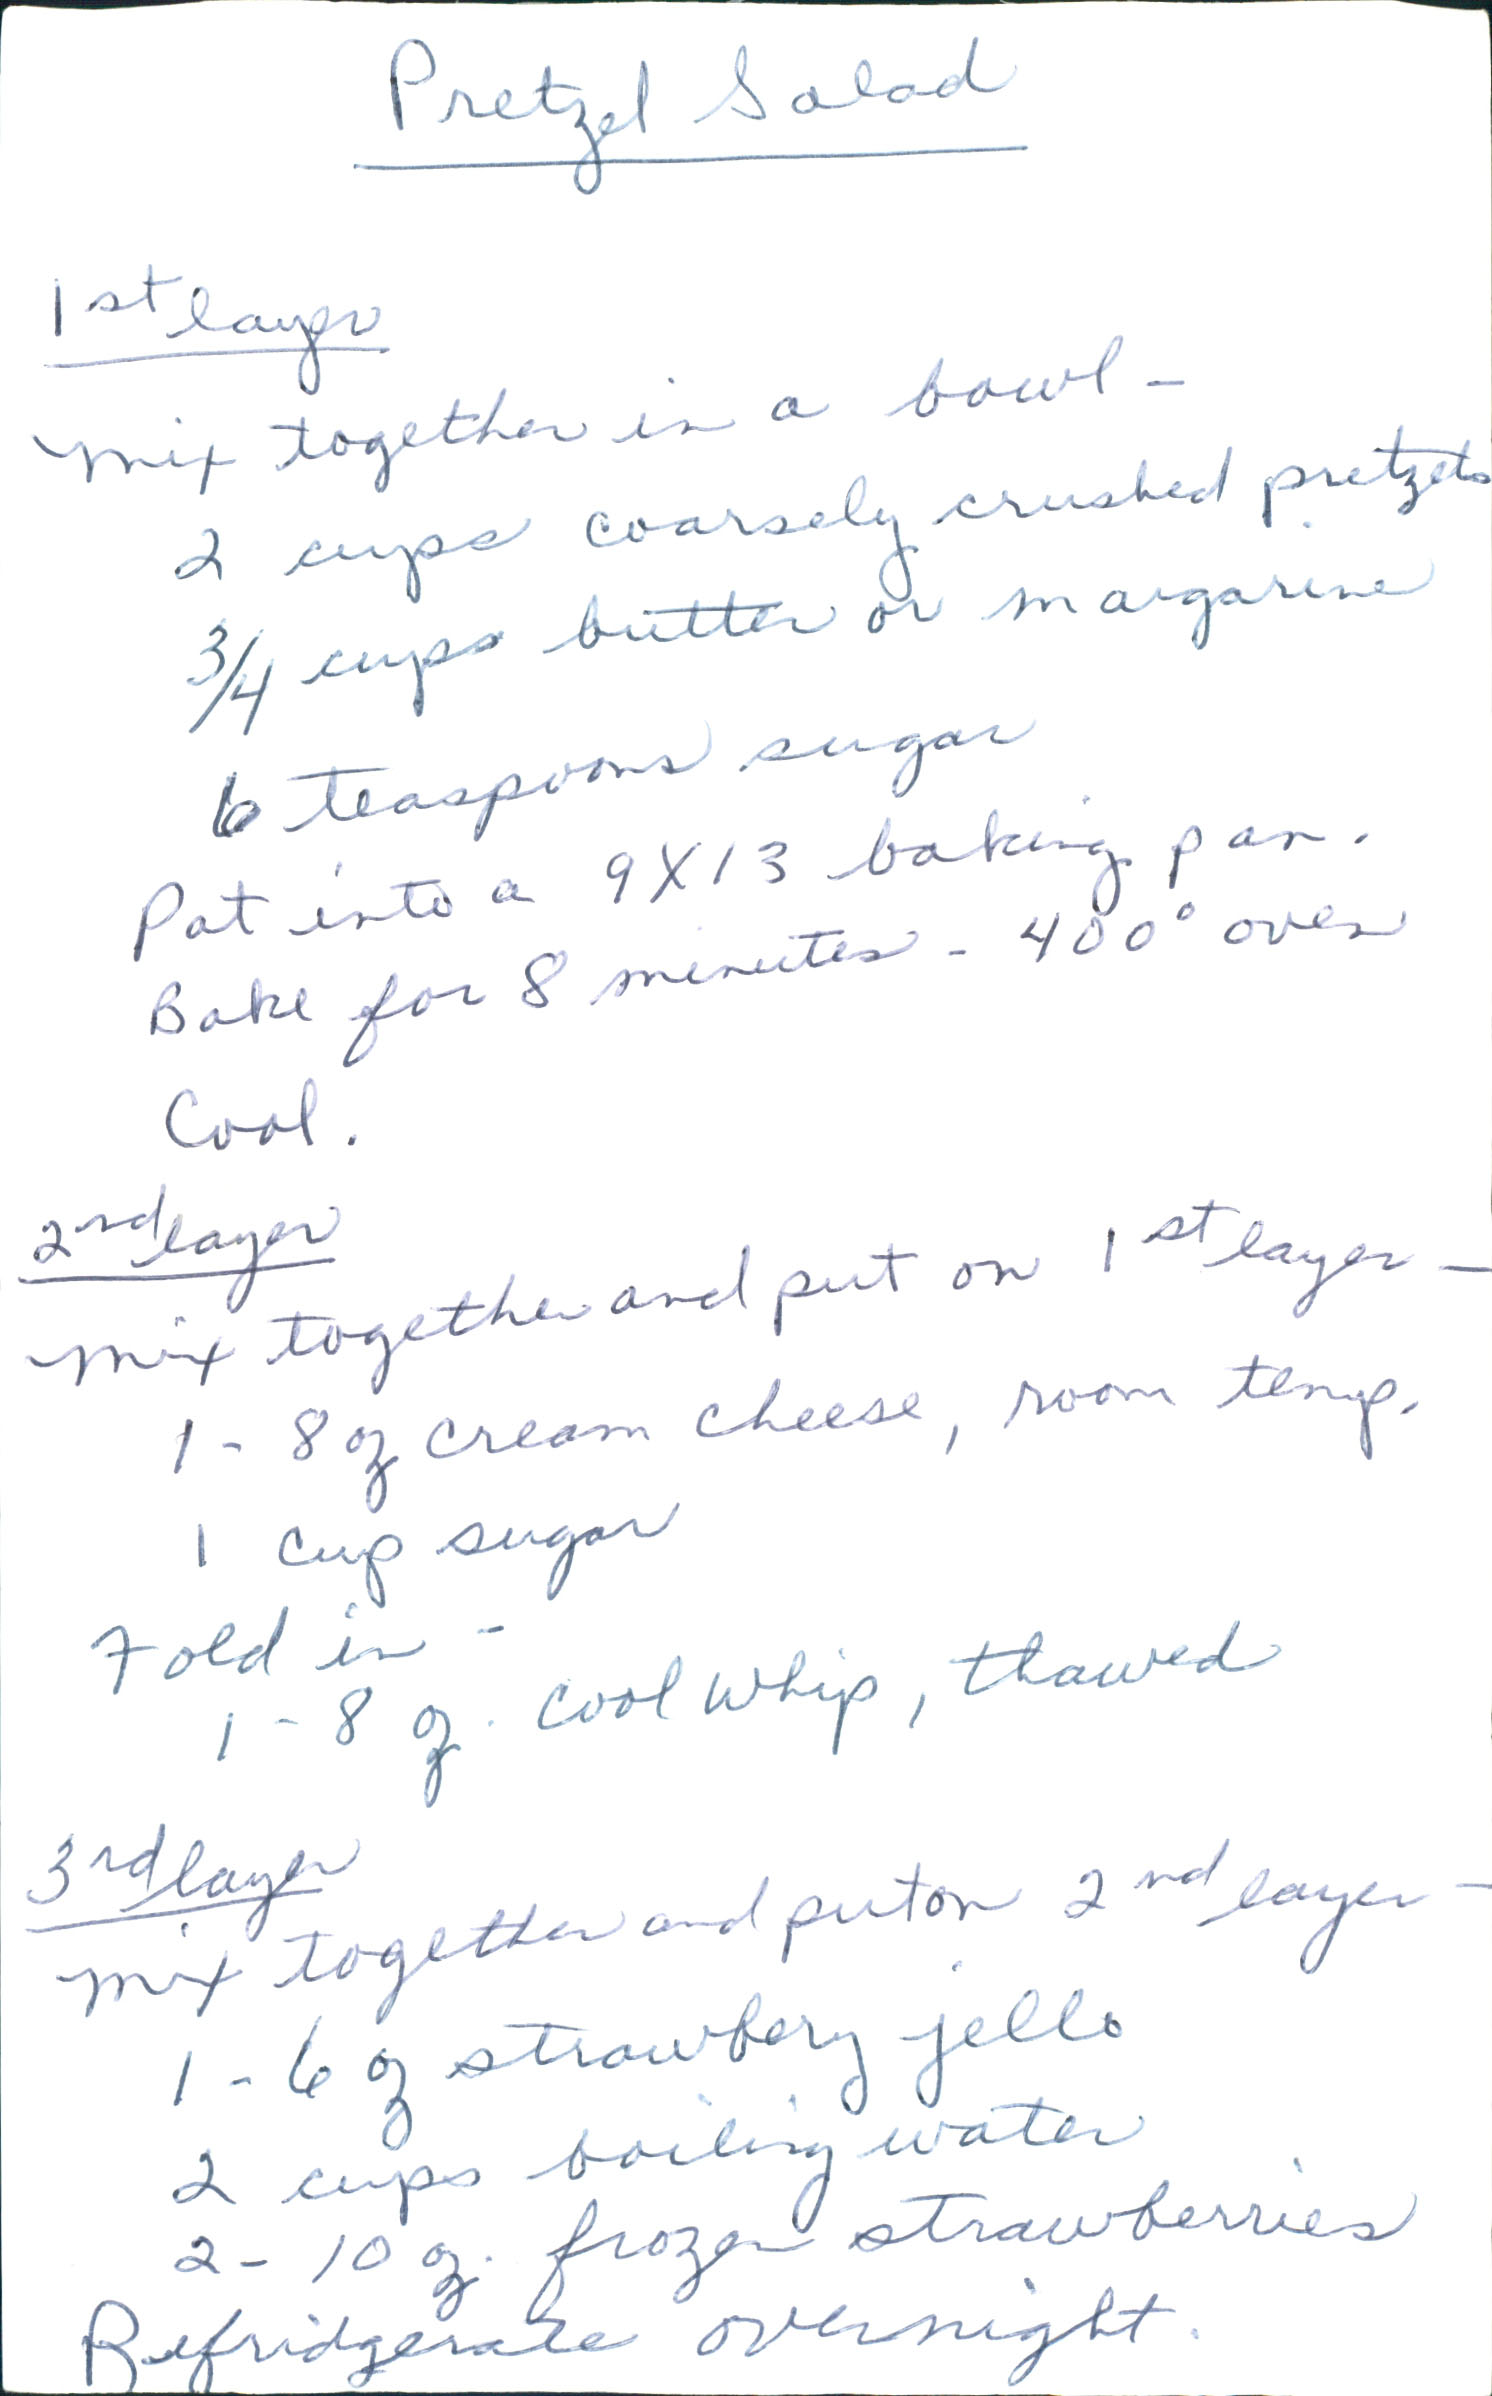 Pretzel Salad
1st layer
Mix together in a bowl -
2 cups coarsely crushed pretzels
3/4 cups butter or margarine
6 teaspoons sugar
Pat into a 9X13 baking pan.
Bake for 8 minutes - 400° oven
Cool.
2nd layer
Mix together and put on 1st layer -
1 - 8 oz cream cheese, room temp.
1 cup sugar
Fold in -
1 - 8 oz. cool whip, thawed
3rd layer
Mix together and put on 2nd layer -
1 - 6 oz strawbery jello
2 cups boiling water
2 - 10 oz. frozen strawberries
Refridgerate overnight.